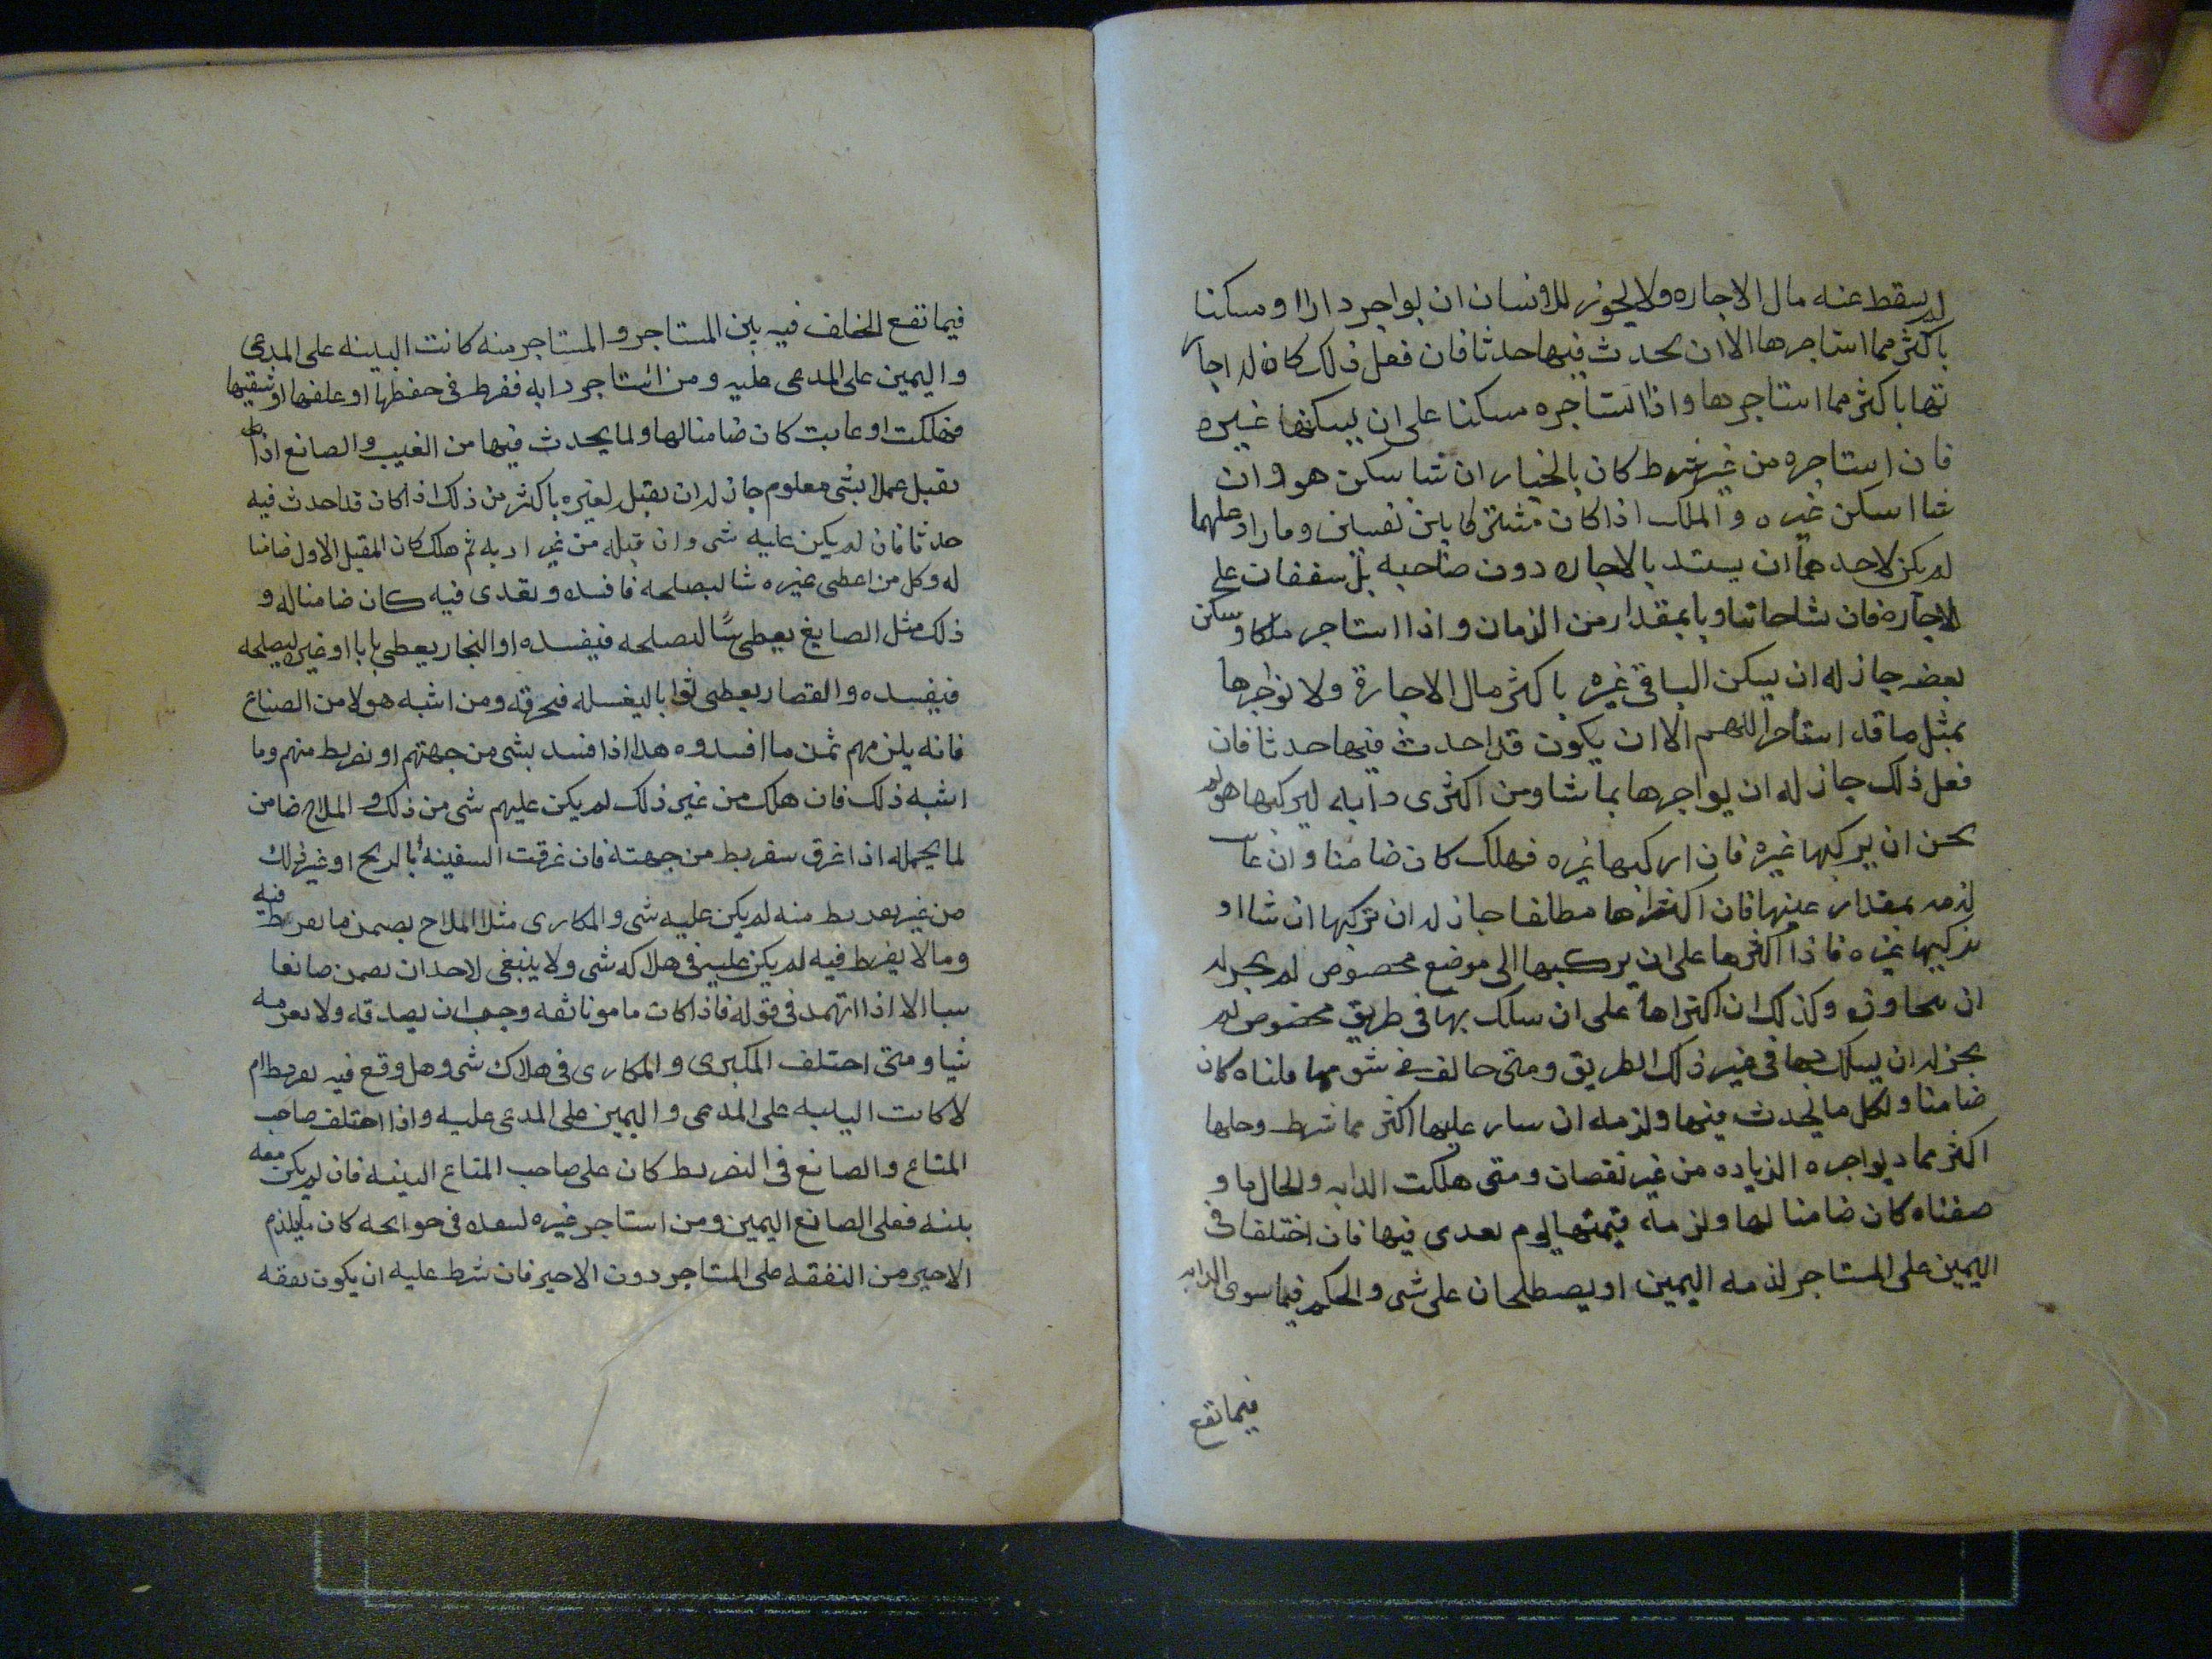 لم يسقط عنه مال الاجاره ولا يجوز للانسان ان يواجر دارا او مسكنا
باكثر مما استاجرها الا ان يحدث فيها حدثا فان فعل ذلك كان له اجار
تها باكثر مما استاجرها واذا استاجره مسكنا على ان يسكنها غيره
فان استاجره من غير شرط كان بالخيار ان شا سكن هو وان
شا اسكن غيره والملك اذا كان مشتركا بين نفسين وما زاد عليهما
لم يكن لاحدهما ان يستبد بالاجاره دون صاحبه بل يتفقان على
الاجاره فان تشاحا تناوبا بمقدار من الزمان واذا استاجر ملكا وسكن
بعضه جاز له ان يسكن الباقي غيره باكثر مال الاجارة ولا يواجرها
بمثل ما قد استاجر اللهم الا ان يكون قد احدث فيها حدثا فان
فعل ذلك جاز له ان يواجرها بما شا ومن اكترى دابه ليركبها هو لم
يجز ان يركبها غيره فان اركبها غيره فهلك كان ضامنا وان عابت
لزمه بمقدار عيبها فان اكتراها مطلقا جاز له ان يركبها ان شا او
يركبها غيره فاذا اكترها على ان يركبها الى موضع مخصوص لم يجز له
ان يتجاوزه وكذلك ان اكتراها على ان يسلك بها في طريق مخصوص لم
يجز له ان يسلك بها في غير ذلك الطريق ومتى خالف في شي مما قلناه كان
ضامنا ولكل ما يحدث فيها ولزمه ان سار عليها اكثر مما شرط وحملها
اكثر مما يواجره الزياده من غير نقصان ومتى هلكت الدابه والحال ما و
صفناه كان ضامنا لها ولزمه قيمتها يوم تعدى فيها فان اختلفا في
اليمين على المستاجر لزمه اليمين او يصطلحان على شي والحكم فيما سوى الدابه
فيما تقع
فيما تقع الخلف فيه بين المستاجر والمستاجر منه كانت البينه على المدعى
واليمين على المدعى عليه ومن استاجر دابه ففرط في حفظها او علفها او سقيها
فهلكت او عابت كان ضامنا لها ولما يحدث فيها من العيب والصانع اذا
تقبل عملا بشي معلوم جاز له ان يقبل لغيره باكثر من ذلك اذا كان قد احدث فيه
حدثا فان لم يكن عليه شي وان قبله من غير اذنه ثم هلك كان المقبل الاول ضامنا
له وكل من اعطى غيره شيا ليصلحه فافسده وتعدى فيه كان ضامنا له و
ذلك مثل الصايغ يعطى شيا ليصلحه فيفسده او النجار يعطى بابا او غيره ليصلحه
فيفسده والقصار يعطى ثوبا ليغسله فيحرقه ومن اشبه هولا من الصناع
فانه يلزمهم ثمن ما افسدوه هذا اذا فسد بشي من جهتهم او تفريط منهم وما
اشبه ذلك فان هلك من غير ذلك لم يكن عليهم شي من ذلك والملاح ضامن
لما يحمله اذا غرق بتفريط من جهته فان غرقت السفينه بالريح او غير ذلك
من غير تفريط منه لم يكن عليه شي والمكاري مثل الملاح يضمن ما يفرط فيه
وما لا يفرط فيه لم يكن عليه في هلاكه شي ولا ينبغي لاحد ان يضمن صانعا
شيا الا اذا اتهمه في قوله فاذا كان مامونا ثقه وجب ان يصدقه ولا يغرمه
شيا ومتى اختلف المكتري والمكاري في هلاك شي وهل وقع فيه تفريط ام
لا كانت البينه على المدعى واليمين على المدعى عليه واذا اختلف صاحب
المتاع والصانع في التفريط كان على صاحب المتاع البينه فان لم يكن معه
بينه فعلى الصانع اليمين ومن استاجر غيره لينفذه في حوايجه كان ما يلزم
الاجير من النفقه على المستاجر دون الاجير فان شرط عليه ان يكون نفقه